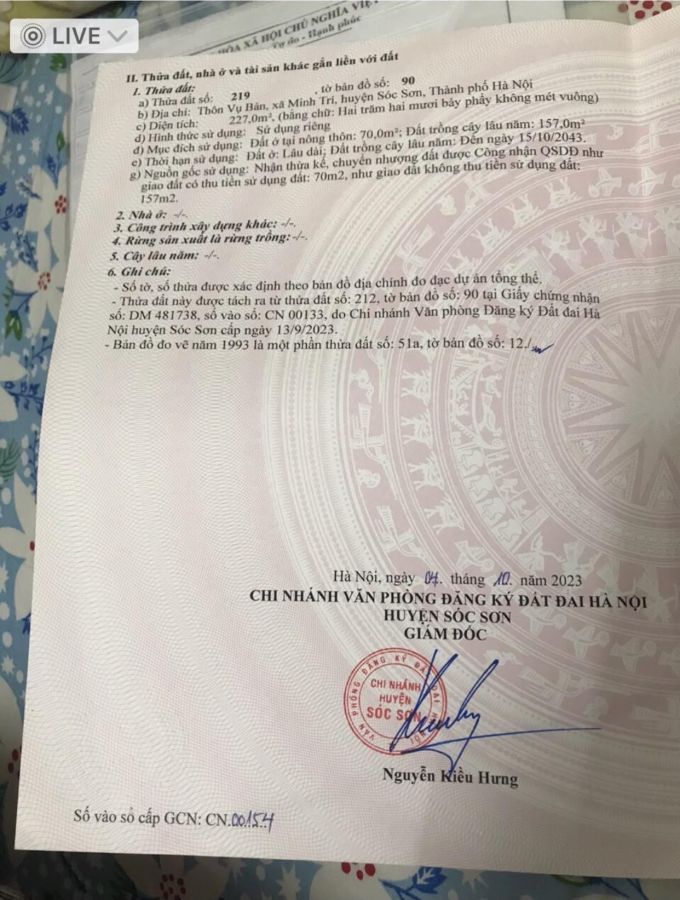 LIVE
HÒA XÃ HỘI CHỦ NGHĨA VIỆ
Tự do - Hạnh phúc
II. Thửa đất, nhà ở và tài sản khác gắn liền với đất
1. Thửa đất:
a) Thửa đất số: 219 , tờ bản đồ số: 90
b) Địa chỉ: Thôn Vụ Bản, xã Minh Trí, huyện Sóc Sơn, Thành phố Hà Nội
c) Diện tích: 227,0m², (bằng chữ: Hai trăm hai mươi bảy phẩy không mét vuông)
d) Hình thức sử dụng: Sử dụng riêng
đ) Mục đích sử dụng: Đất ở tại nông thôn: 70,0m²; Đất trồng cây lâu năm: 157,0m²
e) Thời hạn sử dụng: Đất ở: Lâu dài; Đất trồng cây lâu năm: Đến ngày 15/10/2043.
g) Nguồn gốc sử dụng: Nhận thừa kế, chuyển nhượng đất được Công nhận QSDĐ như
giao đất có thu tiền sử dụng đất: 70m2, như giao đất không thu tiền sử dụng đất:
157m2.
2. Nhà ở: -/-.
3. Công trình xây dựng khác: -/-.
4. Rừng sản xuất là rừng trồng: -/-.
5. Cây lâu năm: -/-.
6. Ghi chú:
- Số tờ, số thửa được xác định theo bản đồ địa chính đo đạc dự án tổng thể.
- Thửa đất này được tách ra từ thửa đất số: 212, tờ bản đồ số: 90 tại Giấy chứng nhận
số: DM 481738, số vào sổ: CN 00133, do Chi nhánh Văn phòng Đăng ký Đất đai Hà
Nội huyện Sóc Sơn cấp ngày 13/9/2023.
- Bản đồ đo vẽ năm 1993 là một phần thửa đất số: 51a, tờ bản đồ số: 12./.
Hà Nội, ngày 04. tháng 10. năm 2023
CHI NHÁNH VĂN PHÒNG ĐĂNG KÝ ĐẤT ĐAI HÀ NỘI
HUYỆN SÓC SƠN
GIÁM ĐỐC
VĂN PHÒNG ĐĂNG KÝ ĐẤT ĐAI HÀ NỘI
CHI NHÁNH
HUYỆN
SÓC SƠN
Nguyễn Kiều Hưng
Số vào sổ cấp GCN: CN.00154